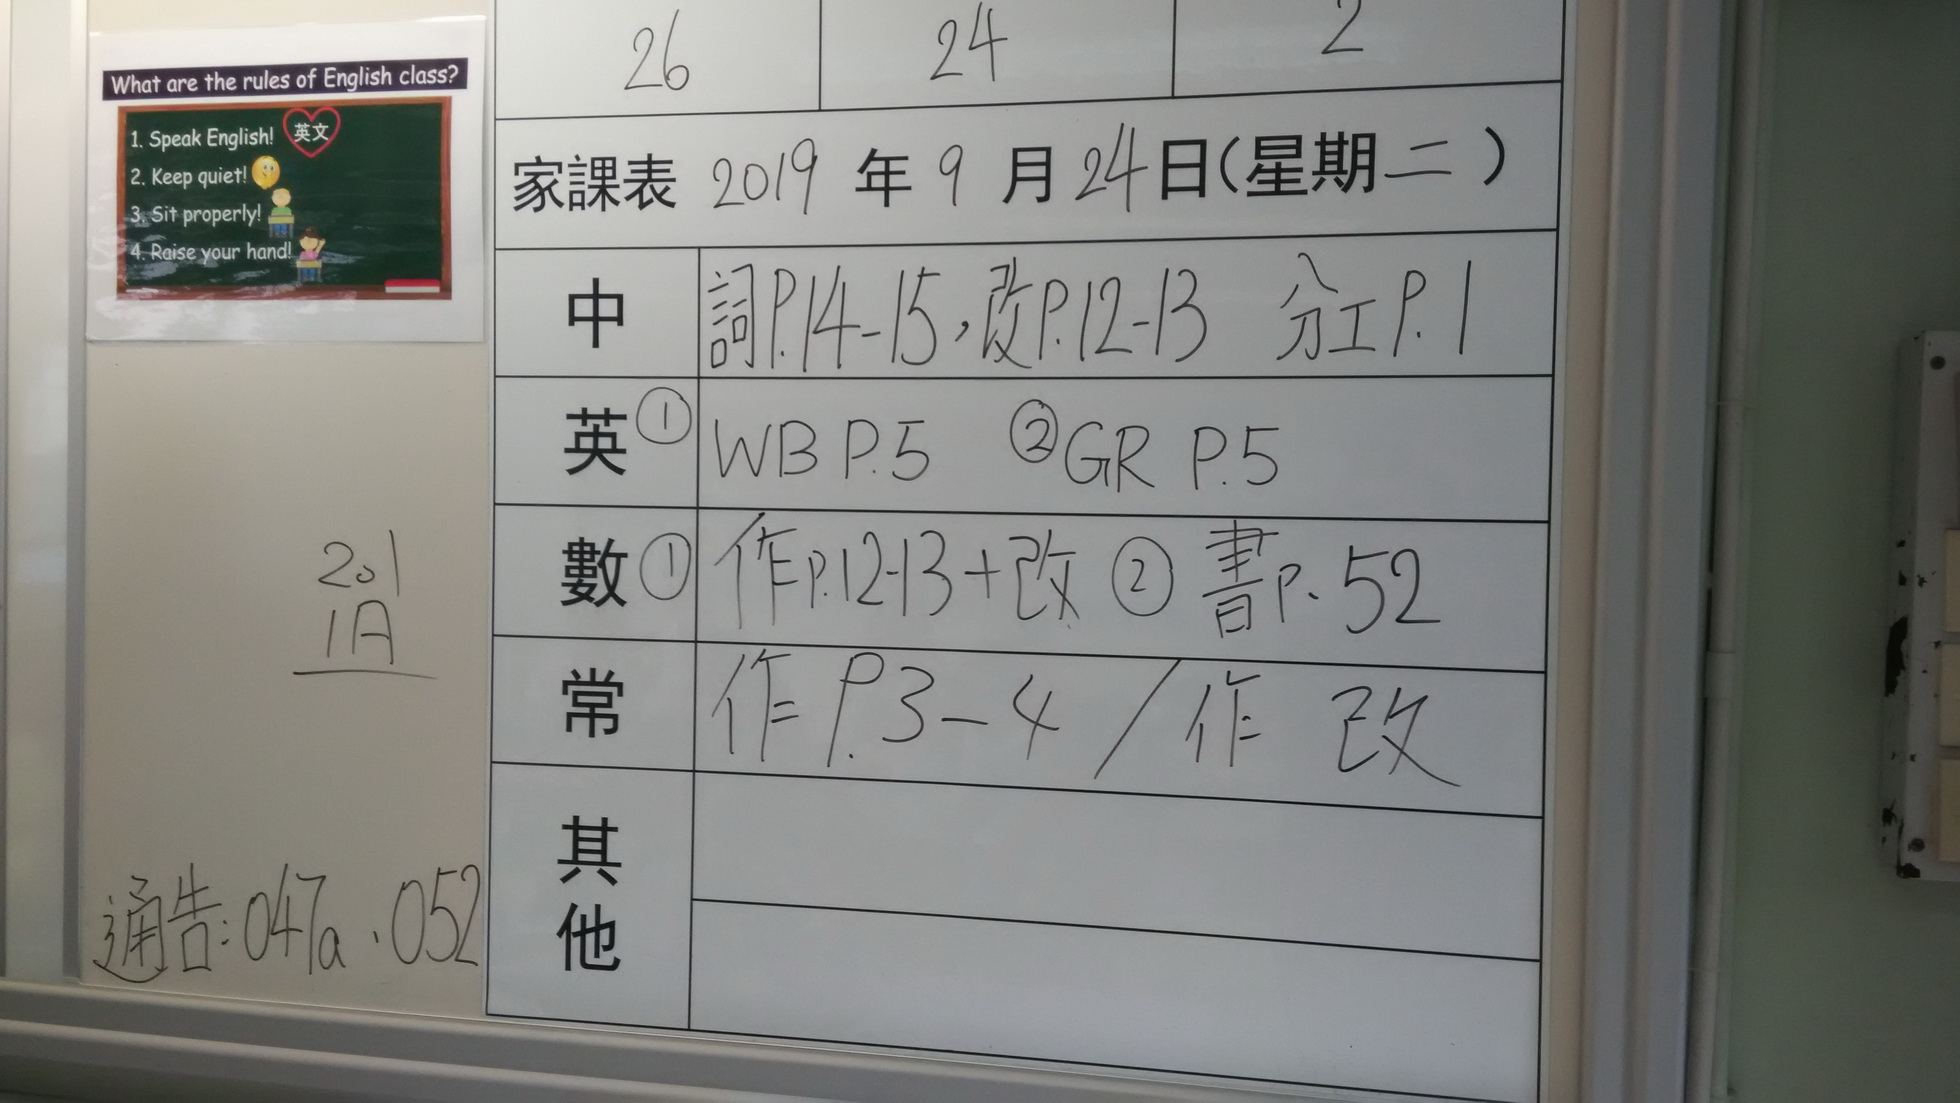 What are the rules of English class?
1. Speak English! 英文
2. Keep quiet!
3. Sit properly!
4. Raise your hand!
26 24 2
家課表 2019 年 9 月 24 日(星期二)
中 詞P.14-15,改P.12-13 分工P.1
英 ① WB P.5 ② GR P.5
數 ① 作P.12-13+改 ② 書P.52
常 作P.3-4/作改
其他
201
1A
通告:047a、052